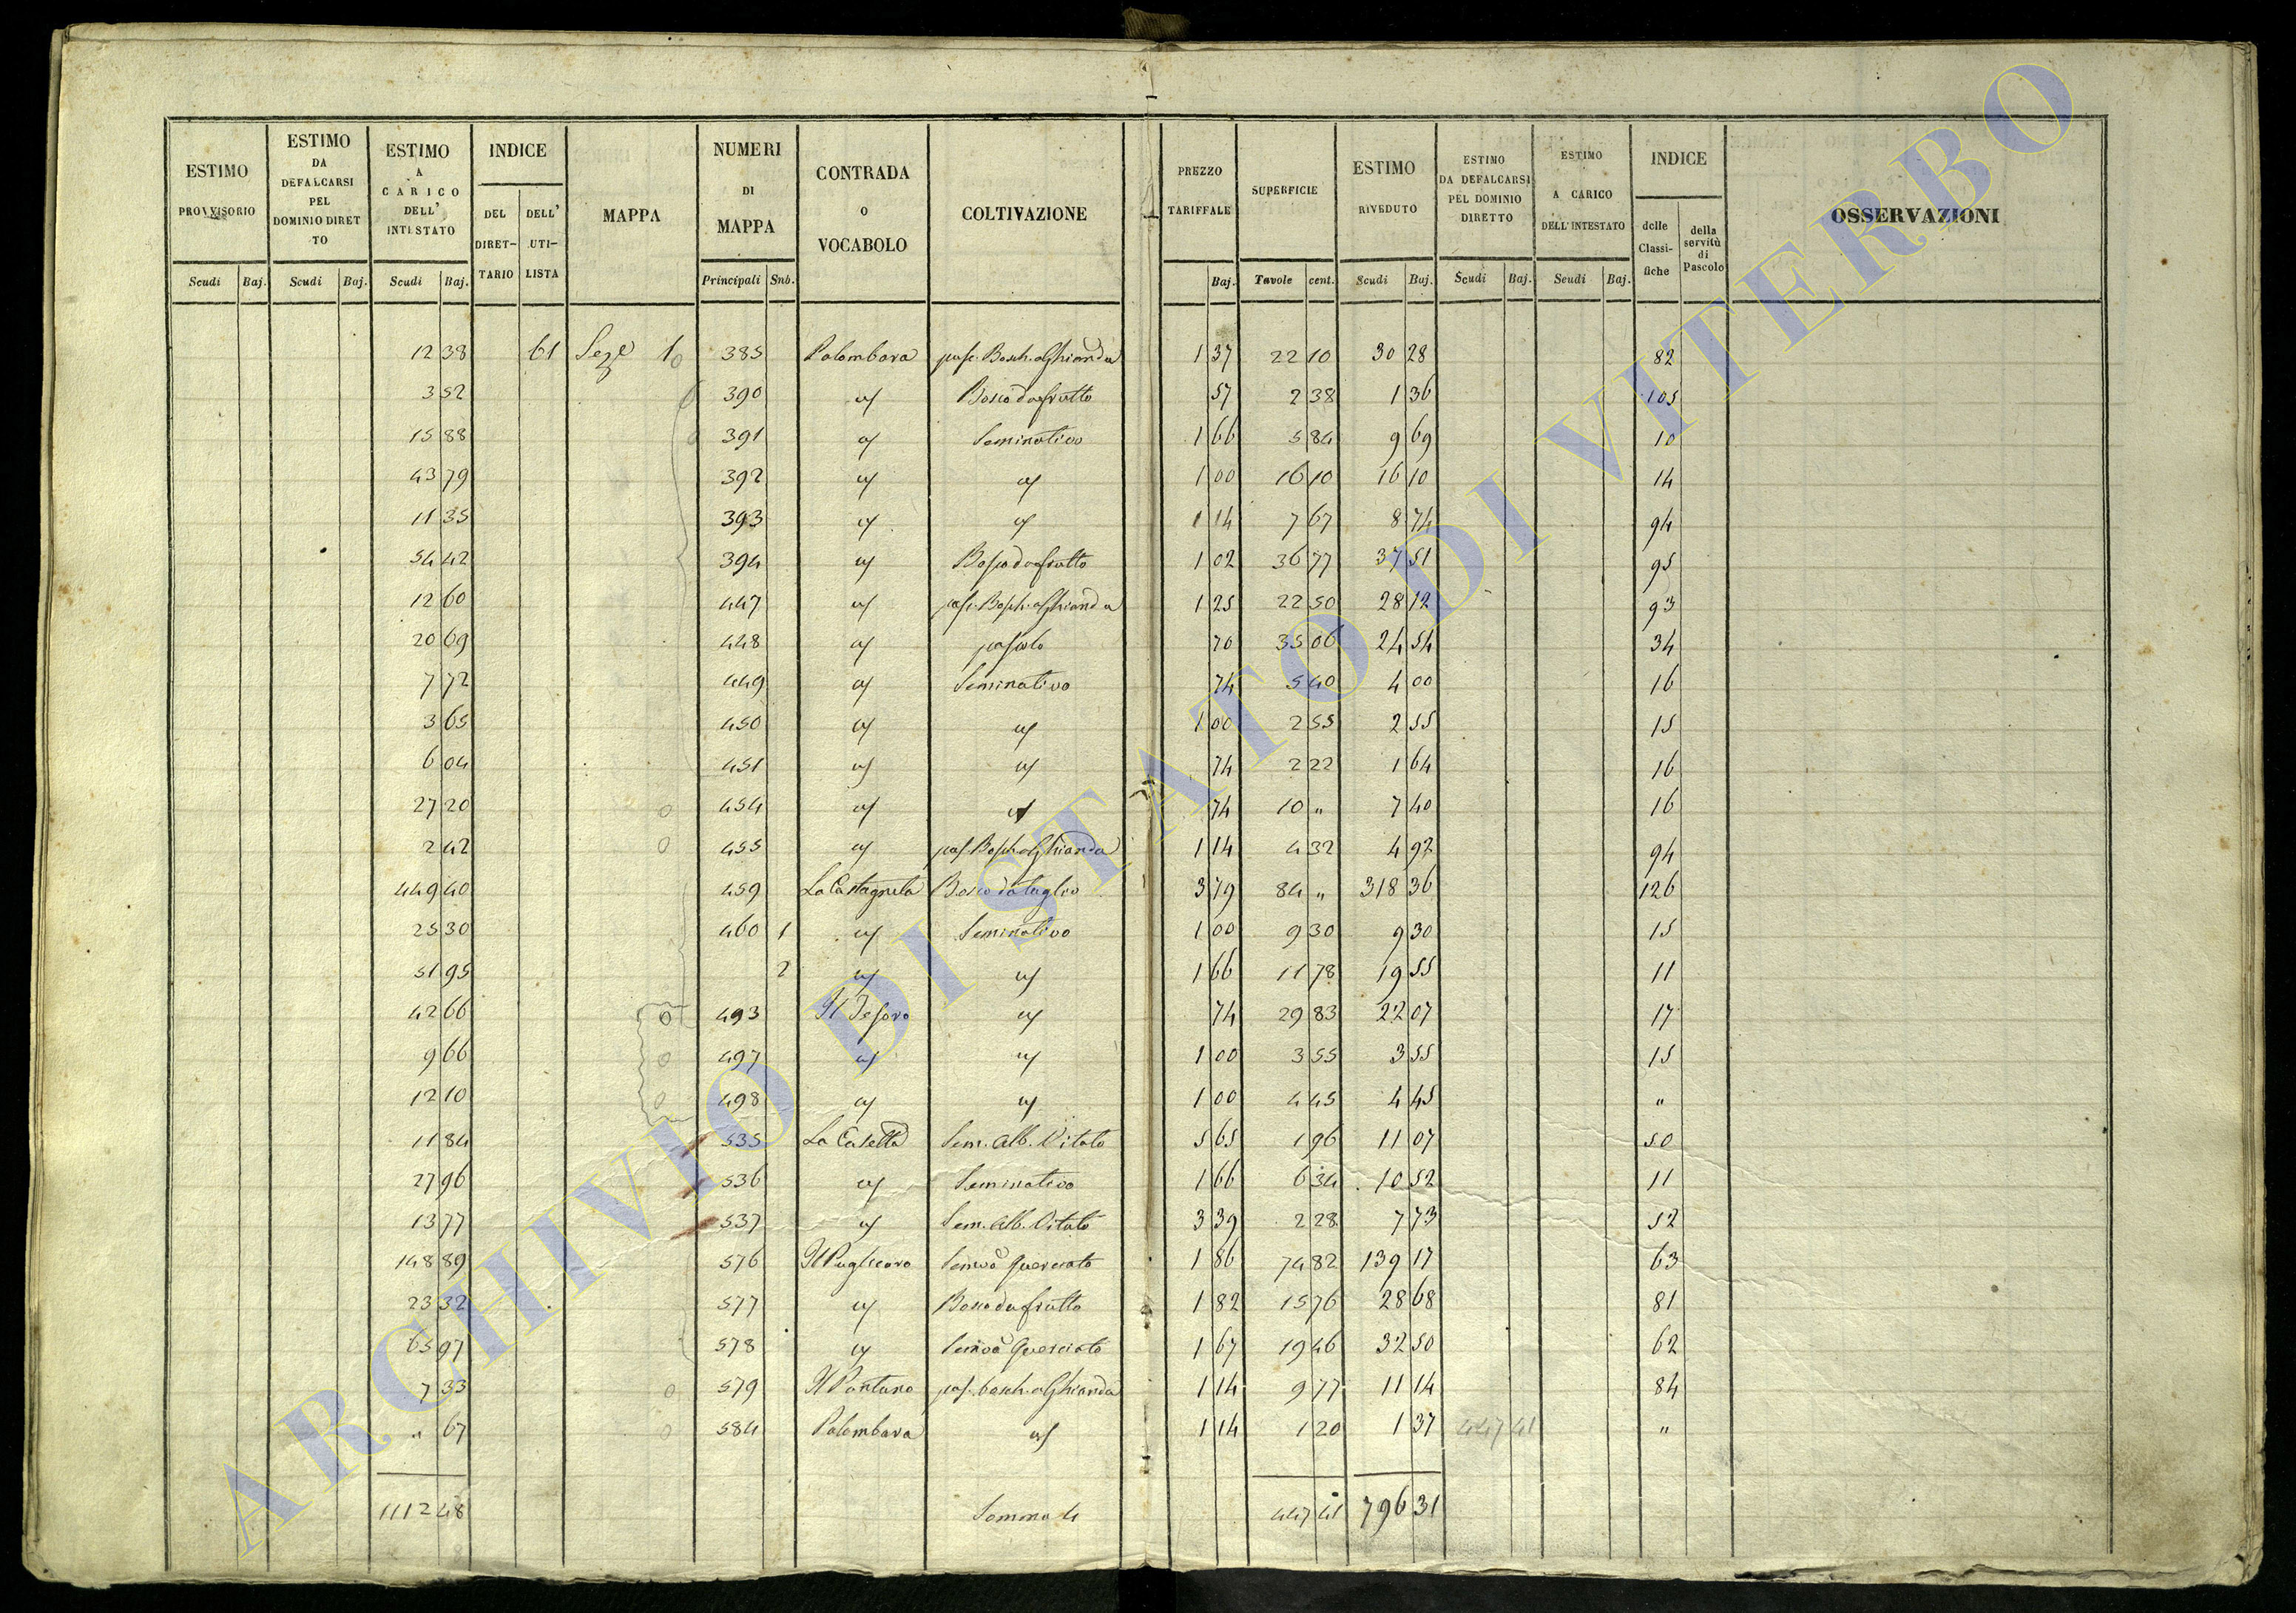 ESTIMO PROVVISORIO | ESTIMO DA DEFALCARSI PEL DOMINIO DIRETTO | ESTIMO A CARICO DELL' INTESTATO | INDICE | MAPPA | NUMERI DI MAPPA | CONTRADA O VOCABOLO | COLTIVAZIONE | PREZZO TARIFFALE | SUPERFICIE | ESTIMO RIVEDUTO | ESTIMO DA DEFALCARSI PEL DOMINIO DIRETTO | ESTIMO A CARICO DELL'INTESTATO | INDICE | OSSERVAZIONI
DEL DIRETTARIO | DELL' UTILISTA | delle Classifiche | della servitù di Pascolo
Scudi | Baj. | Scudi | Baj. | Scudi | Baj. | Principali | Snb. | Baj. | Tavole | cent. | Scudi | Baj. | Scudi | Baj. | Scudi | Baj.
12 38 | 61 | Seze 1 0 | 385 | Palombara | pasc. Bosch. a Ghianda | 1 37 | 22 10 | 30 28 | 82
3 52 | 390 | a/ | Bosco da frutto | 57 | 2 38 | 1 36 | 105
15 88 | 391 | a/ | Seminativo | 1 66 | 5 84 | 9 69 | 10
43 79 | 392 | a/ | a/ | 1 00 | 16 10 | 16 10 | 14
11 35 | 393 | a/ | a/ | 1 14 | 7 67 | 8 74 | 94
54 42 | 394 | a/ | Bosco da frutto | 1 02 | 36 77 | 37 51 | 95
12 60 | 447 | a/ | pasc. Bosch. a Ghianda | 1 25 | 22 50 | 28 12 | 93
20 69 | 448 | a/ | pascolo | 70 | 35 06 | 24 54 | 34
7 72 | 449 | a/ | Seminativo | 74 | 5 40 | 4 00 | 16
3 65 | 450 | a/ | a/ | 1 00 | 2 55 | 2 55 | 15
6 04 | 451 | a/ | a/ | 74 | 2 22 | 1 64 | 16
27 20 | 0 | 454 | a/ | a/ | 74 | 10 " | 7 40 | 16
2 42 | 0 | 455 | a/ | pas. Bosch. a Ghianda | 1 14 | 4 32 | 4 92 | 94
449 40 | 459 | La Castagneta | Bosco da taglio | 3 79 | 84 " | 318 36 | 126
25 30 | 460 | 1 | a/ | Seminativo | 1 00 | 9 30 | 9 30 | 15
51 95 | 2 | a/ | a/ | 1 66 | 11 78 | 19 55 | 11
42 66 | 0 | 493 | Il Tesoro | a/ | 74 | 29 83 | 22 07 | 17
9 66 | 0 | 497 | a/ | a/ | 1 00 | 3 55 | 3 55 | 15
12 10 | 0 | 498 | a/ | a/ | 1 00 | 4 45 | 4 45 | "
11 84 | 535 | La Casetta | Sem. Alb. Vitato | 5 65 | 1 96 | 11 07 | 50
27 96 | 536 | a/ | Seminativo | 1 66 | 6 34 | 10 52 | 11
13 77 | 537 | a/ | Sem. Alb. Vitato | 3 39 | 2 28 | 7 73 | 52
148 89 | 576 | Il Pagliearo | Semvo Querciato | 1 86 | 74 82 | 139 17 | 63
23 32 | 577 | a/ | Bosco da frutto | 1 82 | 15 76 | 28 68 | 81
65 97 | 578 | a/ | Semvo Querciato | 1 67 | 19 46 | 32 50 | 62
7 33 | 0 | 579 | Il Pantano | pas. bosch. a Ghianda | 1 14 | 9 77 | 11 14 | 84
" 67 | 0 | 584 | Palombara | a/ | 1 14 | 1 20 | 1 37 | 447 41 | "
1112 48 | Somma 4 | 447 41 | 796 31
ARCHIVIO DI STATO DI VITERBO